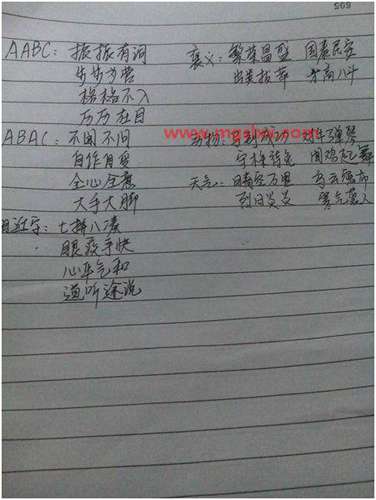 AABC：振振有词 褒义：繁荣昌盛 国泰民安
步步为营 出类拔萃 才高八斗
格格不入
历历在目 www.mgshw.com
ABAC：不闻不问 动物：马到成功 对牛弹琴
自作自受 守株待兔 闻鸡起舞
全心全意 天气：晴空万里
大手大脚 烈日炎炎 寒气逼人
近义字：七拼八凑
眼疾手快
心平气和
道听途说